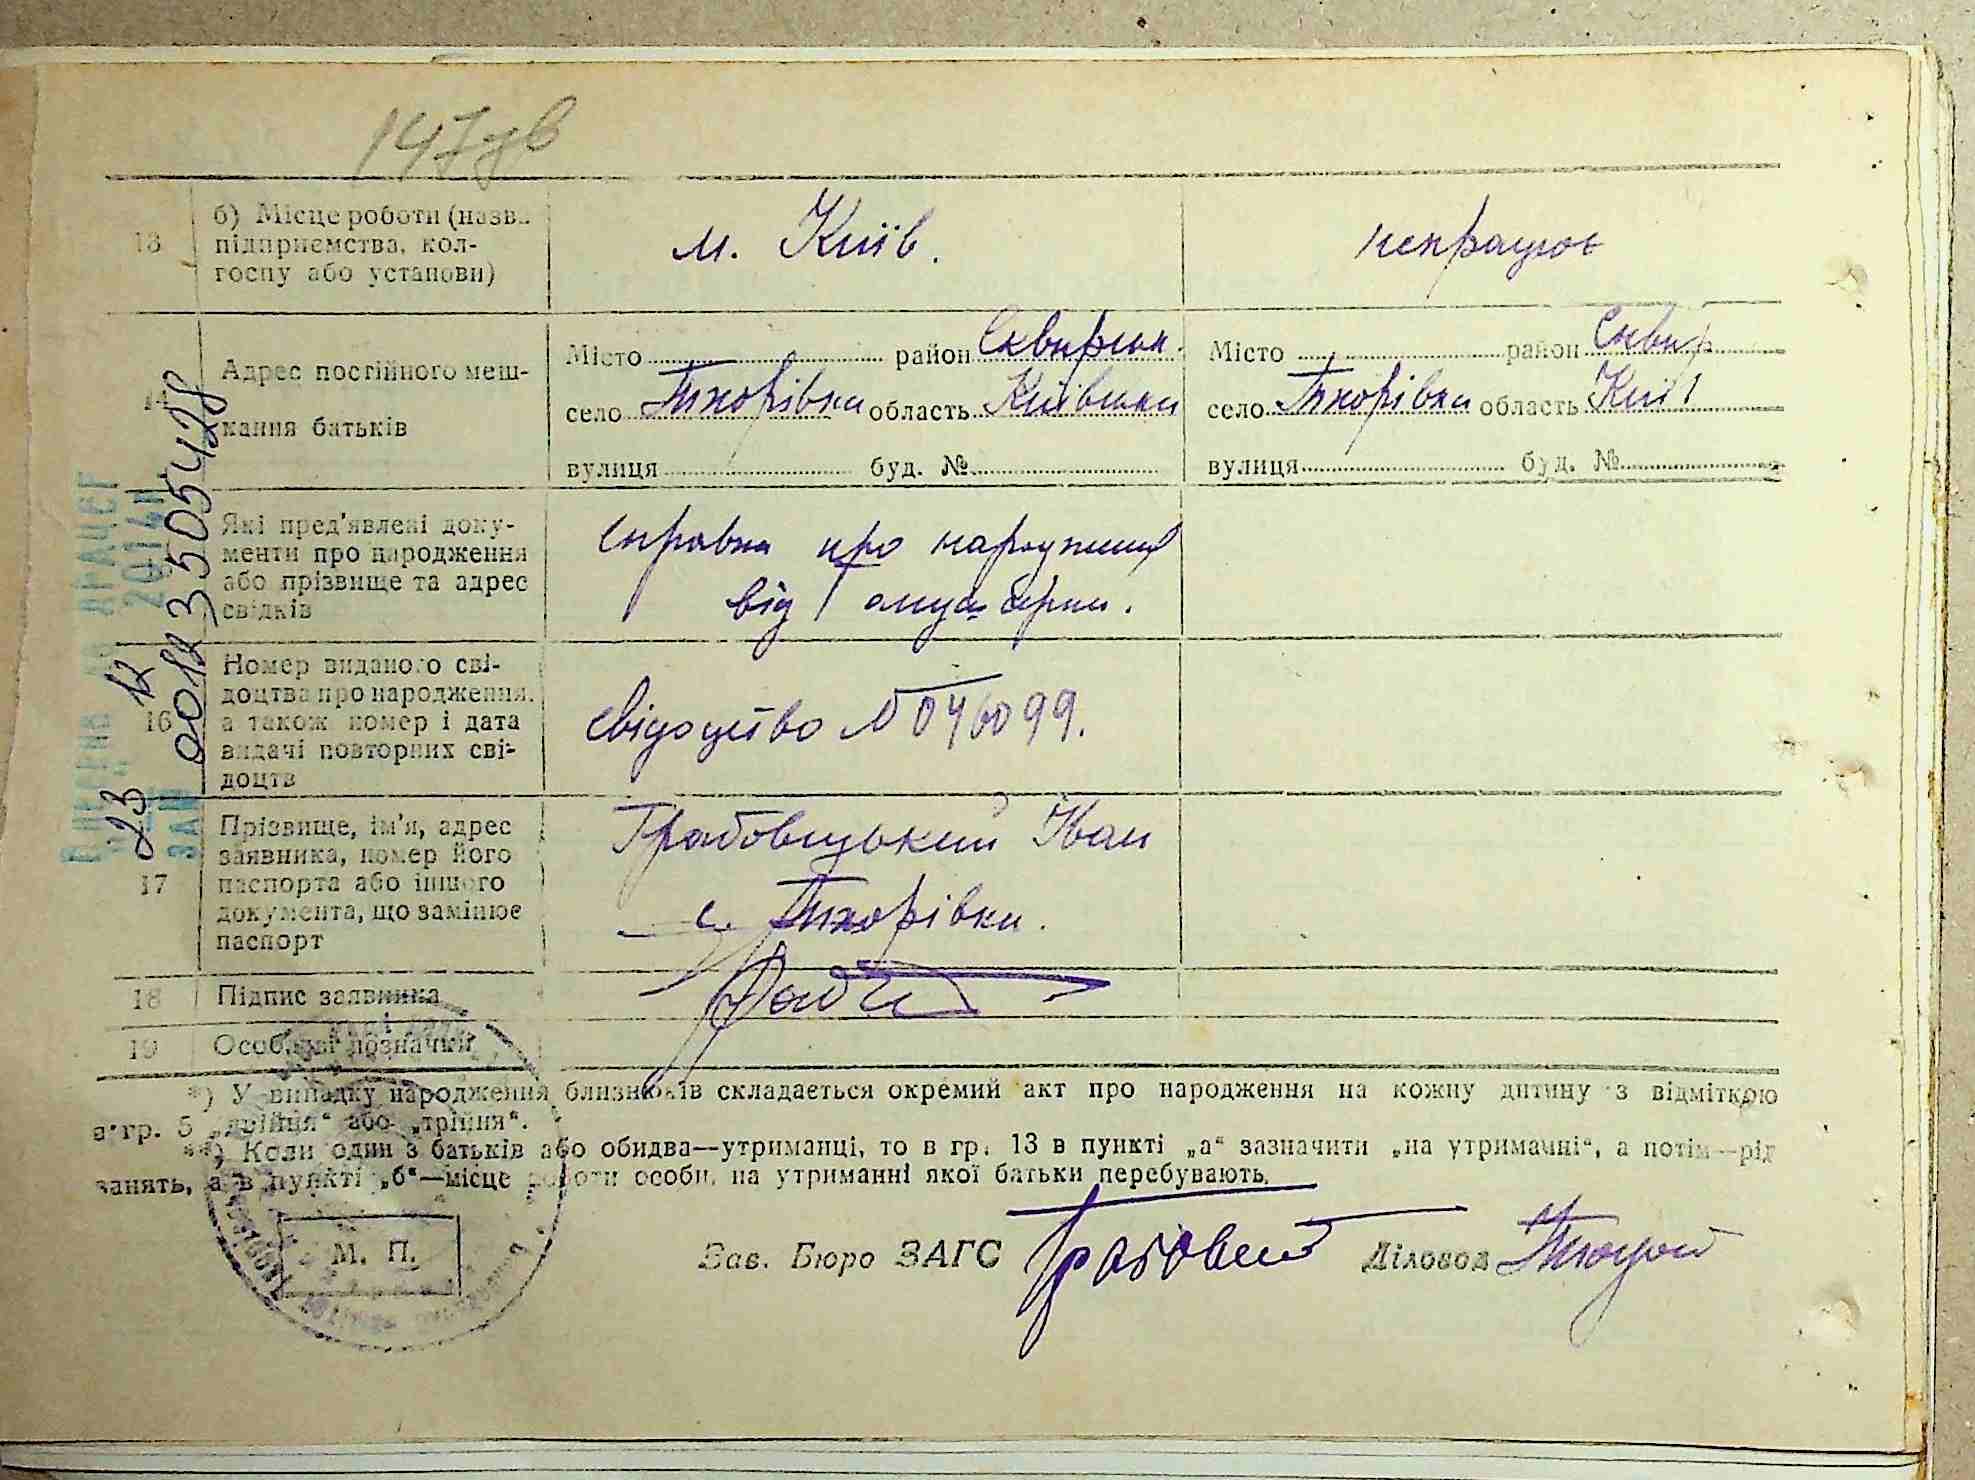 147зв
13 б) Місце роботи (назва підприємства, колгоспу або установи)
м. Київ.
непрацює
14 Адрес постійного мешкання батьків
Місто район Сквирськ.
село Тхорівка область Київська
вулиця буд. №
Місто район Сквир
село Тхорівка область Київ
вулиця буд. №
Які пред'явлені документи про народження або прізвище та адрес свідків
справка про народження
від акушерки.
16 Номер виданого свідоцтва про народження, а також номер і дата видачі повторних свідоцтв
Свідоцтво № 046099.
17 Прізвище, ім'я, адрес заявника, номер його паспорта або іншого документа, що замінює паспорт
Грабовецький Іван
с. Тхорівка.
18 Підпис заявника
19 Особливі позначки
*) У випадку народження близнюків складається окремий акт про народження на кожну дитину з відміткою
в гр. 5 „двійня“ або „трійня“.
**) Коли один з батьків або обидва—утриманці, то в гр. 13 в пункті „а“ зазначити „на утриманні“, а потім—рід
занять, а в пункті „б“—місце роботи особи, на утриманні якої батьки перебувають.
М. П.
Зав. Бюро ЗАГС
Діловод
23 12
2014
ЗАМ
00123505428